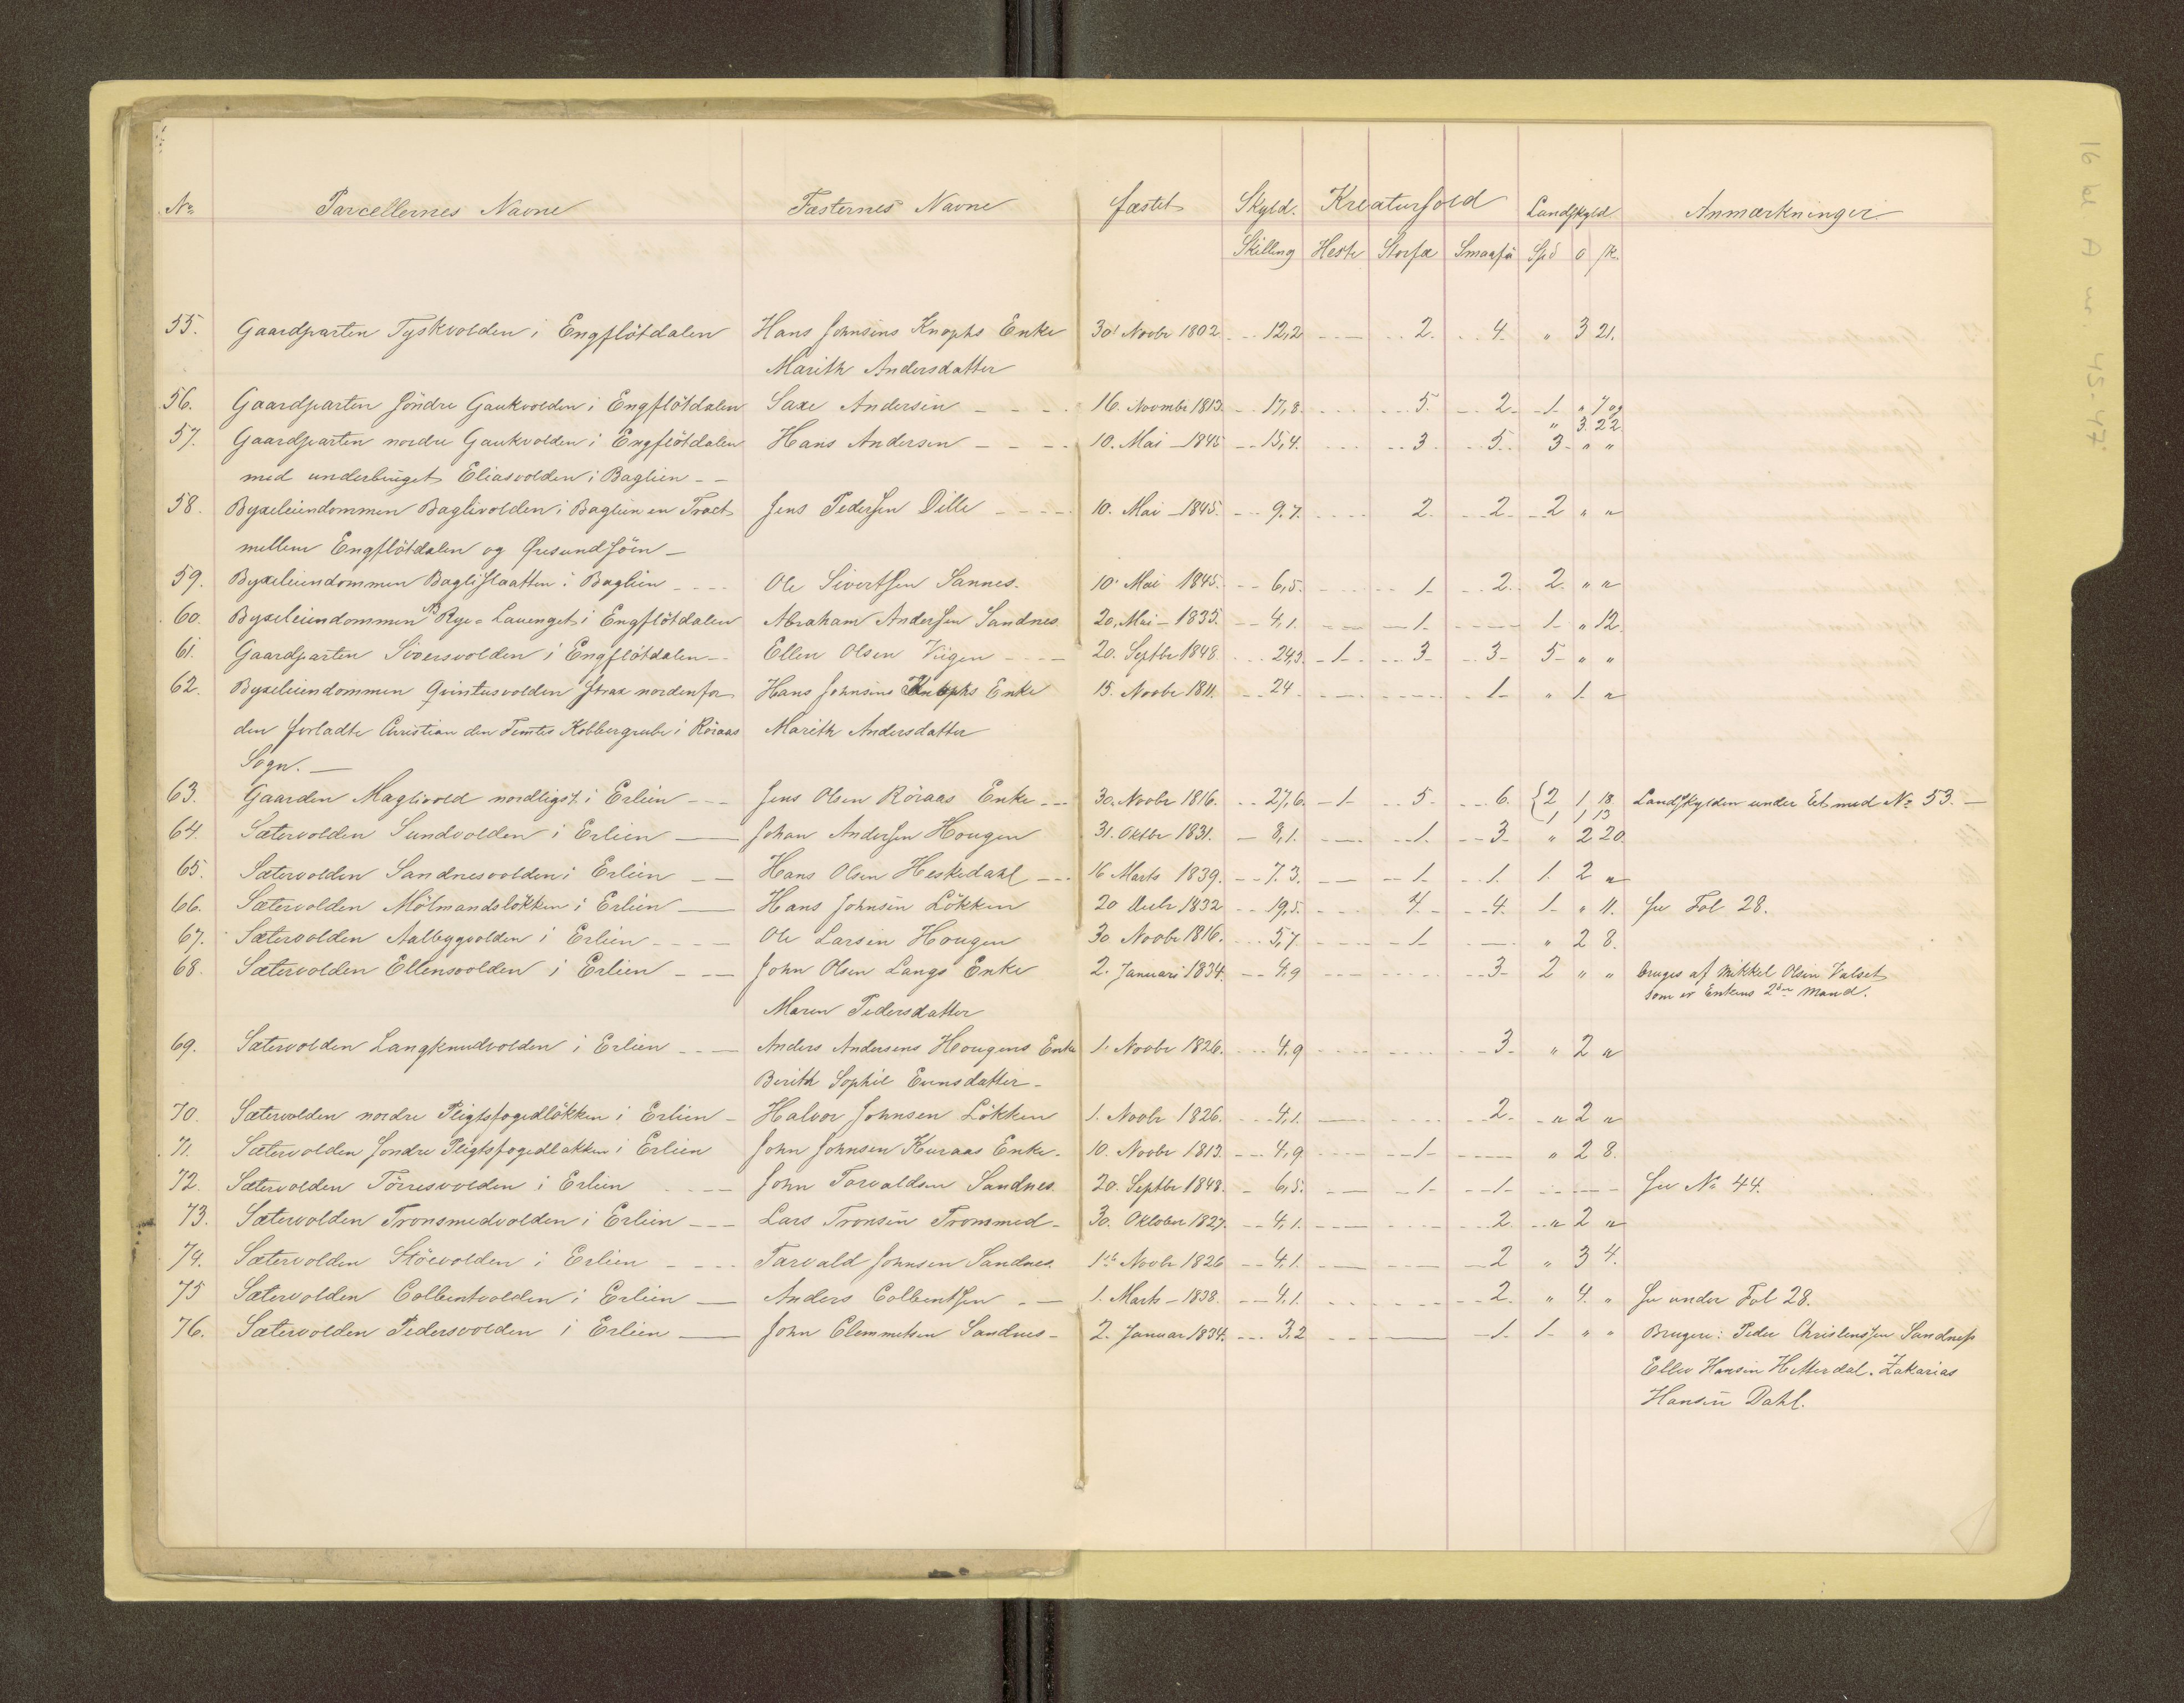 No. Parcellernes Navne Fæsternes Navne fæstet Skyld. Kreaturfold Landskyld Anmærkninger
Skilling Heste Storfæ Smaafæ Spd O sk.
55. Gaardparten Tyskvolden i Engflötdalen Hans Johnsens Knophs Enke 30' Novbr 1802 12,2 2. 4. " 3 21.
Marith Andersdatter
56. Gaardparten söndre Gaukvolden i Engflötdalen Saxe Andersen 16. Novembr 1813. 17,8. 5. 2. 1. " 7 og
" 3. 22
57. Gaardparten nordre Gaukvolden i Engflötdalen Hans Andersen 10. Mai 1845 15,4. 3 5. 3 " "
med underbruget Eliasvolden i Baglien
58. Bygseleiendommen Baglivolden i Baglien en Tract Jens Pedersen Dille 10. Mai 1845. 9.7. 2. 2 2 " "
mellem Engflötdalen og Öresundsöen
59. Bygseleiendommen Baglislaatten i Baglien Ole Sivertsen Sannes. 10. Mai 1845. 6,5. 1 2. 2 " "
60. Bygseleiendommen Rye-Lauenget i Engflötdalen Abraham Andersen Sandnes. 20. Mai 1835. 4,1. 1 1 " 12.
61. Gaardparten Siversvolden i Engflötdalen Ellen Olsen Viigen 20. Septbr 1848. 24,3. 1 3 3 5 " "
62. Bygseleiendommen Qvintusvolden strax nordenfor Hans Johnsens Knophs Enke 15. Novbr 1811. 24. 1 " 1 "
den forladte Christian den Femtes Kobbergrube i Röraas Marith Andersdatter
Sogn.
63. Gaarden Maglivold nordligst i Erlien Jens Olsen Röraas Enke 30. Novbr 1816. 27,6. 1 5 6. {2 1 18 Landskylden under Eet med No. 53.
1 1 13
64. Sætervolden Sundvolden i Erlien Johan Andersen Hougen 31. Oktbr 1831. 8,1. 1. 3 " 2 20.
65. Sætervolden Sandnesvolden i Erlien Hans Olsen Heskedahl 16 Marts 1839. 7.3. 1 1. 1. 2 "
66. Sætervolden Mölmandslökken i Erlien Hans Johnsen Lökken 20 1832 19,5. 4. 1 " 11. See Fol 28.
67. Sætervolden Aalbygvolden i Erlien Ole Larsen Hougen 30 Novbr 1816. 5,7. 1 " 2 8.
68. Sætervolden Ellensvolden i Erlien John Olsen Langs Enke 2. Januari 1834. 4,9 3 2 " " bruges af Mikkel Olsen Valset
som er Enkens 2den Mand.
Maren Pedersdatter
69. Sætervolden Langknudvolden i Erlien Anders Andersens Hougens Enke 1. Novbr 1826. 4,9 3 " 2 "
Berith Sophie Evensdatter
70. Sætervolden nordre Pligtsfogedlökken i Erlien Halvor Johnsen Lökken 1. Novbr 1826. 4,1. 2. " 2 "
71. Sætervolden söndre Pligtsfogedlökken i Erlien John Johnsen Kuraas Enke. 10. Novbr 1813. 4,9 1 " 2 8.
72. Sætervolden Törresvolden i Erlien John Torvaldsen Sandnes 20. Septbr 1848. 6,5. 1 1 See No 44.
73. Sætervolden Tronsmedvolden i Erlien Lars Tronsen Tronsmed 30. Oktober 1827. 4,1. 2. " 2 "
74. Sætervolden Stöevolden i Erlien Tarvald Johnsen Sandnes. 1ste Novbr 1826 4,1. 2 " 3 4.
75 Sætervolden Colbentvolden i Erlien Anders Colbentsen 1. Marts 1838. 4,1. 2. " 4. " See under Fol 28.
76. Sætervolden Pedersvolden i Erlien John Clemmetsen Sandnes 2. Januar 1834. 3,2 1. 1 " " Brugere: Peder Christensen Sandness
Ellev Hansen Hetterdal. Zakarias
Hansen Dahl.
16 d A n. 45-47